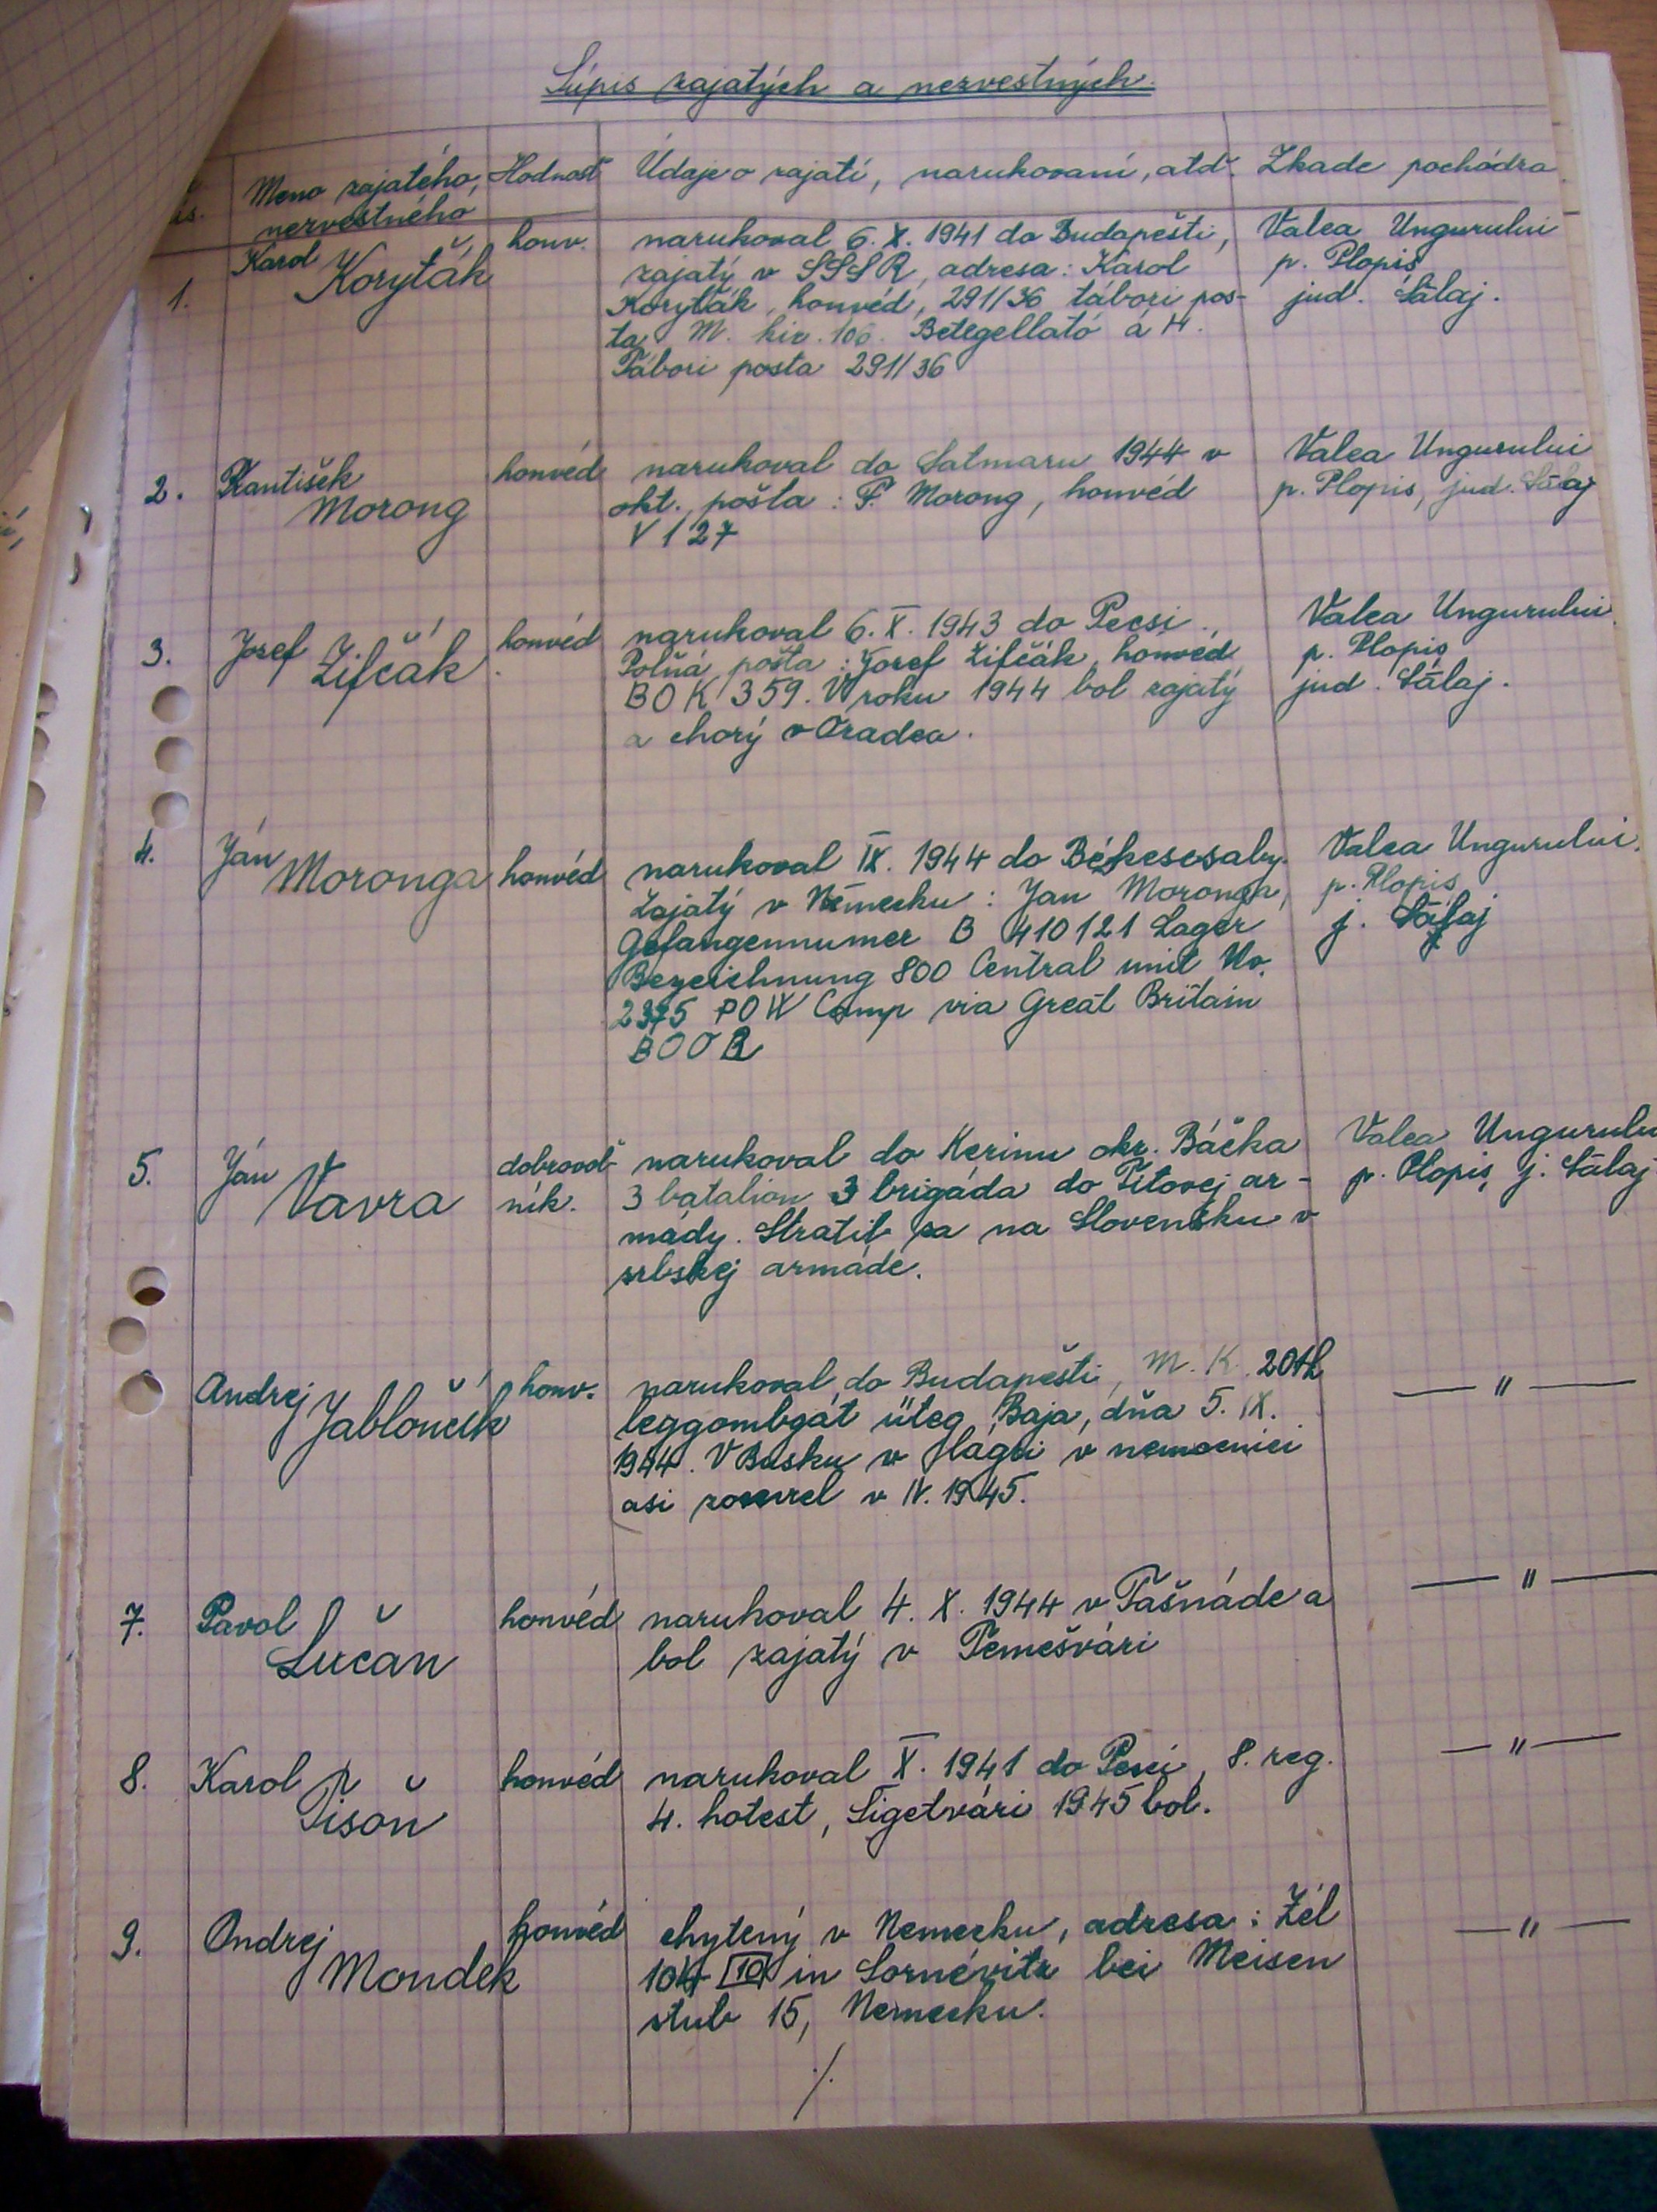 Súpis zajatých a nezvestných.
Meno zajatého, nezvestného
Hodnosť
Údaje o zajatí, narukovaní, atď.
Zkade pochádza
1.
Karol Koryťák
honv.
narukoval 6. X. 1941 do Budapešti,
zajatý v SSSR, adresa: Karol
Koryťák, honvéd, 291/36 tábori pos-
ta M. kir. 106. Betegellató á H.
Tábori posta 291/36
Valea Ungurului
p. Plopiș
jud. Sălaj.
2.
František Morong
honvéd
narukoval do Satmaru 1944 v
okt., pošta: F. Morong, honvéd
V 127
Valea Ungurului
p. Plopis, jud. Sălaj
3.
Jozef Žifčák
honvéd
narukoval 6. X. 1943 do Pecsi.,
Polná pošta: Jozef Žifčák, honvéd
BOK 359. V roku 1944 bol zajatý
a chorý v Oradea.
Valea Ungurului
p. Plopiș
jud. Sălaj.
4.
Ján Moronga
honvéd
narukoval IX. 1944 do Békescsaby.
Zajatý v Nemecku: Jan Moronga,
Gefangennumer B 410121 Lager
Bezeichnung 800 Central unit No.
2375 POW Camp via Great Britain
BOOR
Valea Ungurului.
p. Plopiș
j. Sălaj
5.
Ján Vavra
dobrovoľ-
ník.
narukoval do Kerinu okr. Báčka
3 batalion 3 brigáda do Titovej ar-
mády. Stratil sa na Slovensku v
srbskej armáde.
Valea Ungurulu
p. Plopiș, j. Sălaj
Andrej Jablončík
honv.
narukoval do Budapešti, M. K. 201th
leggombgát üteg Baja, dňa 5. IX.
1944. V Busku v lágri v nemocnici
asi zomrel v IV. 1945.
— " —
7.
Pavol Lučan
honvéd
narukoval 4. X. 1944 v Tašnáde a
bol zajatý v Temešvári
— " —
8.
Karol Pišoň
honvéd
narukoval X. 1941 do Pesci, 8. reg.
4. hotest, Sigetvári 1945 bol.
— " —
9.
Ondrej Mondek
honvéd
chytený v Nemecku, adresa: Zél
104 10 in Sornévitz bei Meisen
stub 15, Nemecku.
— " —
./.